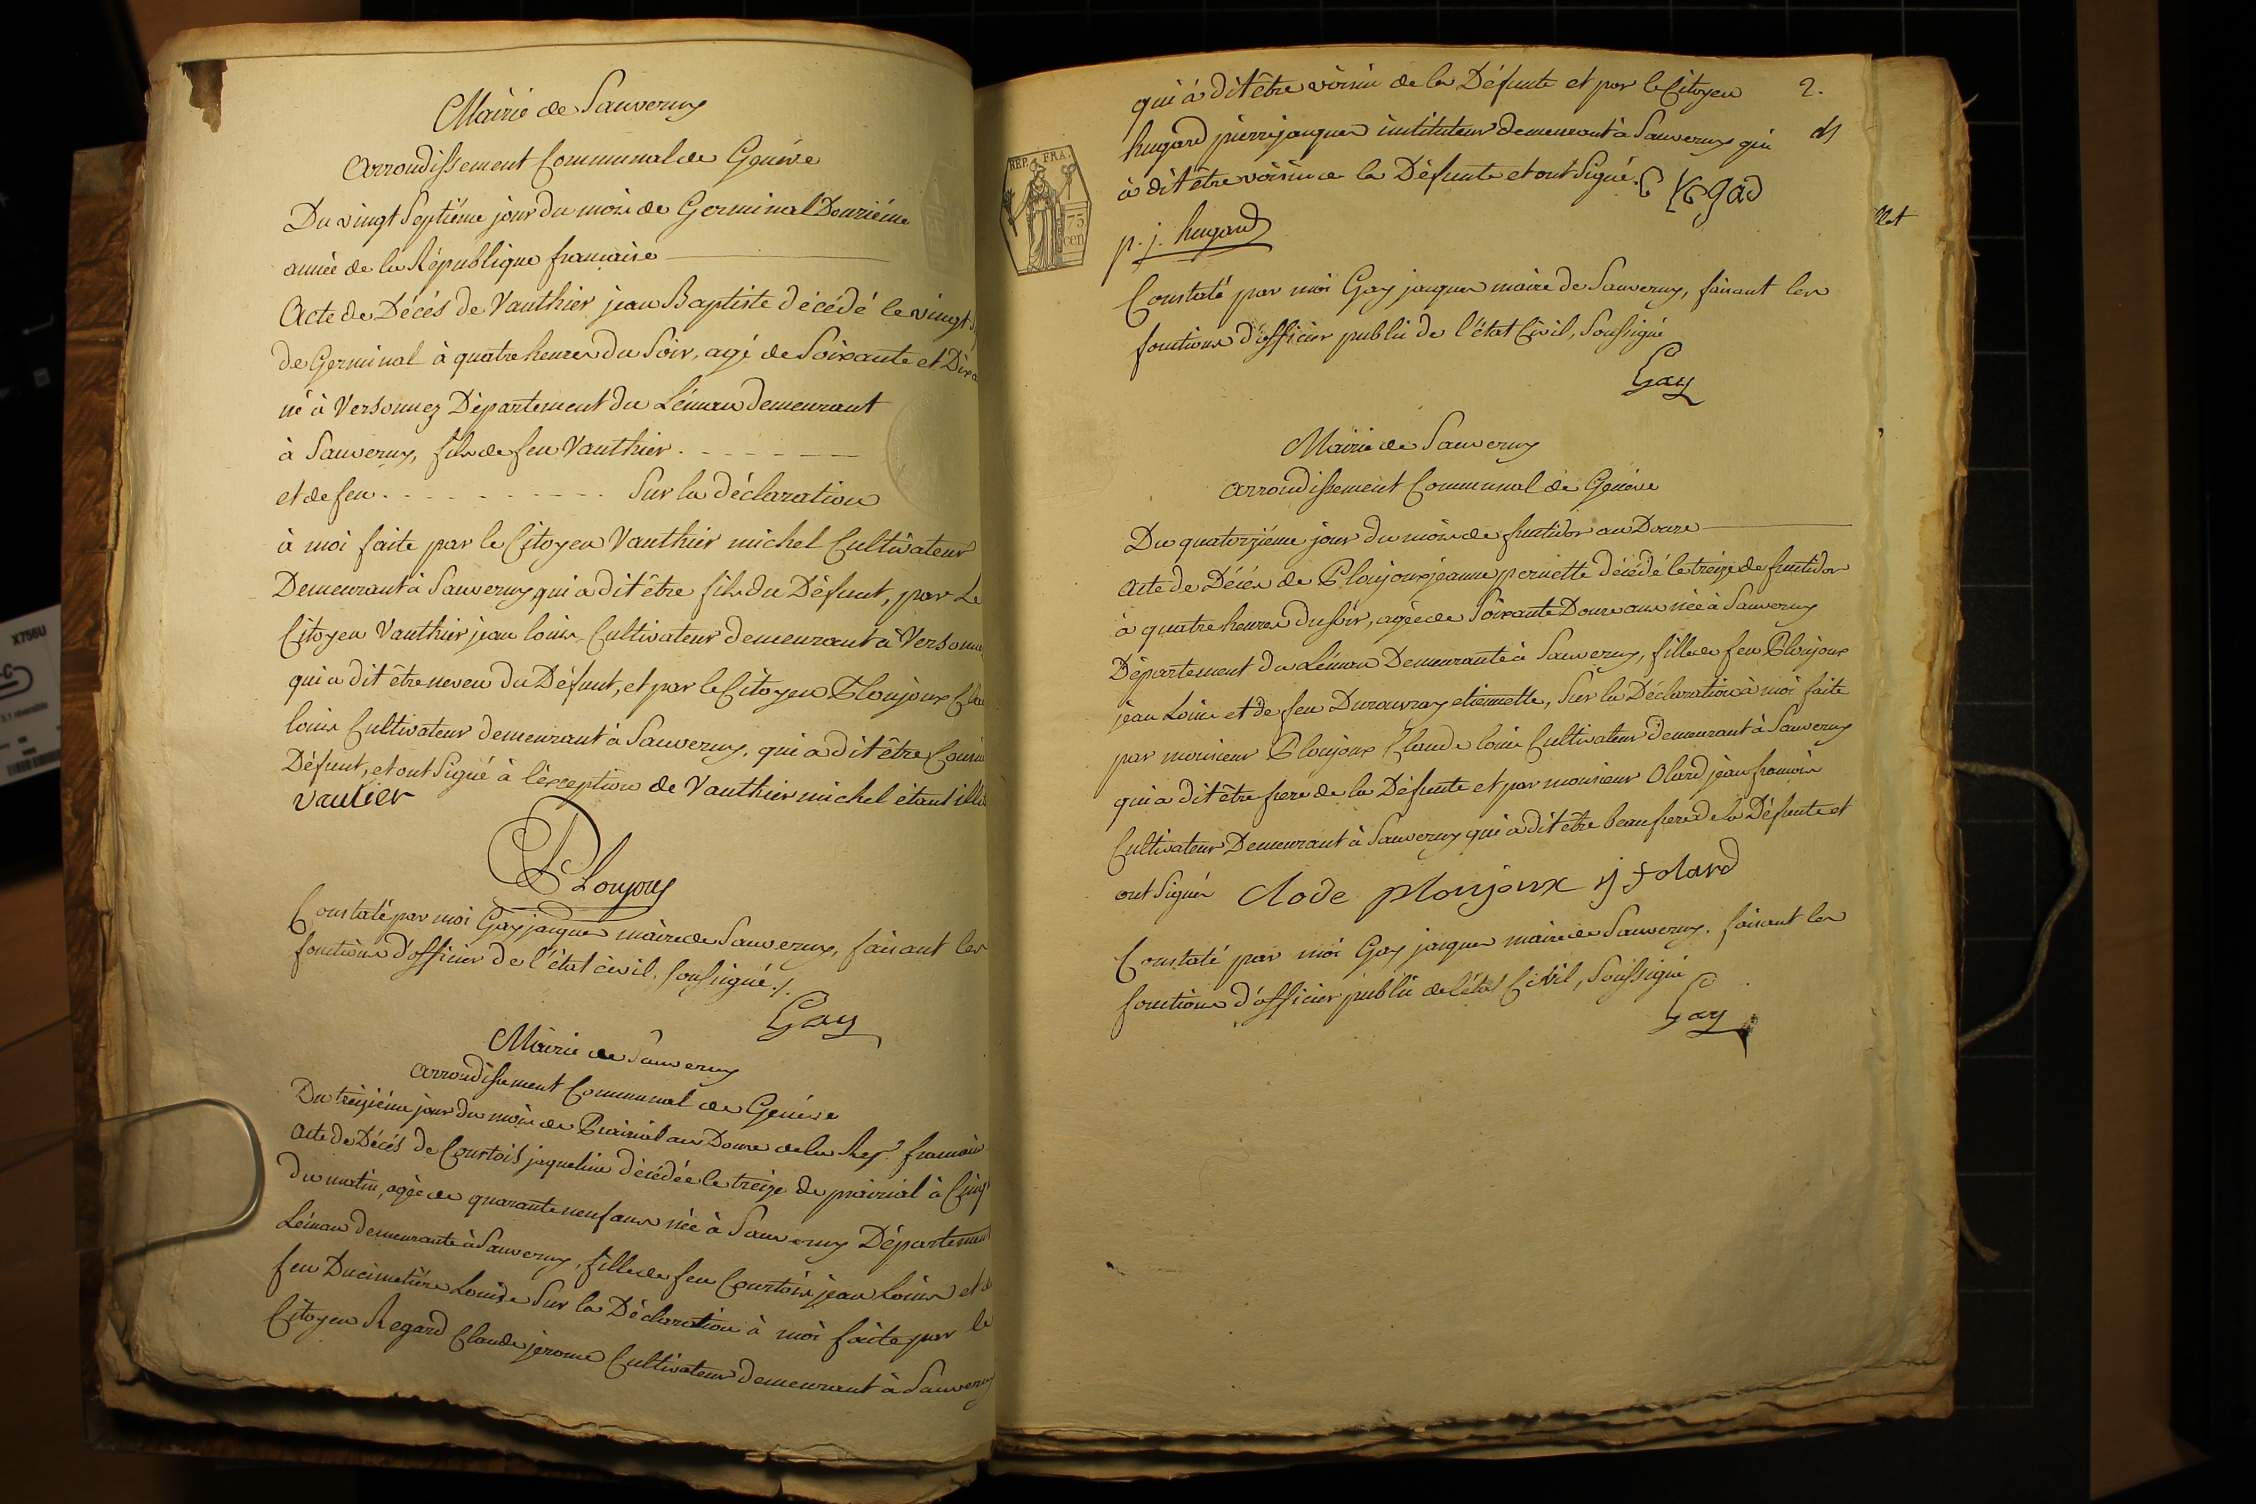 Mairie de Sauverny
Arrondissement Communal de Genève
Du vingt Septiéme jour du mois de Germinal Douziéme
année de la République francaise
Acte de Décés de Vauthier jean Baptiste décédé le vingt
de Germinal à quatre heures du Soir, agé de Soixante et Dix
né à Versonnez Département du Léman demeurant
à Sauverny, fils de feu Vauthier
et de feu Sur la déclaration
à moi faite par le Citoyen Vauthier michel Cultivateur
Demeurant à Sauverny qui a dit être fils du Défunt, par Le
Citoyen Vauthier jean louis Cultivateur demeurant à Verson
qui a dit être neveu du Défunt, et par le Citoyen Ploujoux Cla
louis Cultivateur demeurant à Sauverny, qui a dit être Cousin
Défunt, et ont Signé à l'éxception de Vauthier michel étant illi
vautier
Ploujoux
Constaté par moi Gay jacques maire de Sauverny, faisant les
fonctions d'officier de l'état civil, soussigné ./.
Gay
Mairie de Sauverny
Arrondissement Communal de Genève
Du treiziéme jour du mois de Prairial an Douze de la Rep. francaise
Acte de Décés de Courtois jaqueline décédée le treize de prairial à Cinq
du matin, agée de quarante neuf ans née à Sauverny Département
Léman demeurante à Sauverny, fille de feu Courtois jean Louis et de
feu Ducimetiére Louise Sur la Déclaration à moi faite par le
Citoyen Regard Claude jerome Cultivateur demeurant à Sauverny
2.
qui à dit être voisin de la Défunte et par le Citoyen
hugard pierre jacques instituteur demeurant à Sauverny qui
à dit être voisin de la Défunte et ont Signé.
REP. FRA.
75
cen
p. j. hugard
Constaté par moi Gay jacques maire de Sauverny, faisant les
fonctions d'officier public de l'état Civil, Soussigné
Gay
Mairie de Sauverny
Arrondissement Communal de Genéve
Du quatorziéme jour du mois de fructidor an Douze
Acte de Décés de Ploujoux jeanne pernette décédé le treize de fructidor
à quatre heures du soir, agée de Soixante Douze ans née à Sauverny
Département du Léman Demeurante à Sauverny, fille de feu Ploujoux
jean Louis et de feu etiennette, Sur la Déclaration à moi faite
par monsieur Ploujoux Claude louis Cultivateur demeurant à Sauverny
qui a dit être frere de la Défunte et par monsieur Olard jean francois
Cultivateur Demeurant à Sauverny qui a dit être beaufrere de la Défunte et
ont Signés clode ploujoux j f olard
Constaté par moi Gay jacques maire de Sauverny, faisant les
fonctions d'officier public de l'état Civil, Soussigné
Gay
X756U